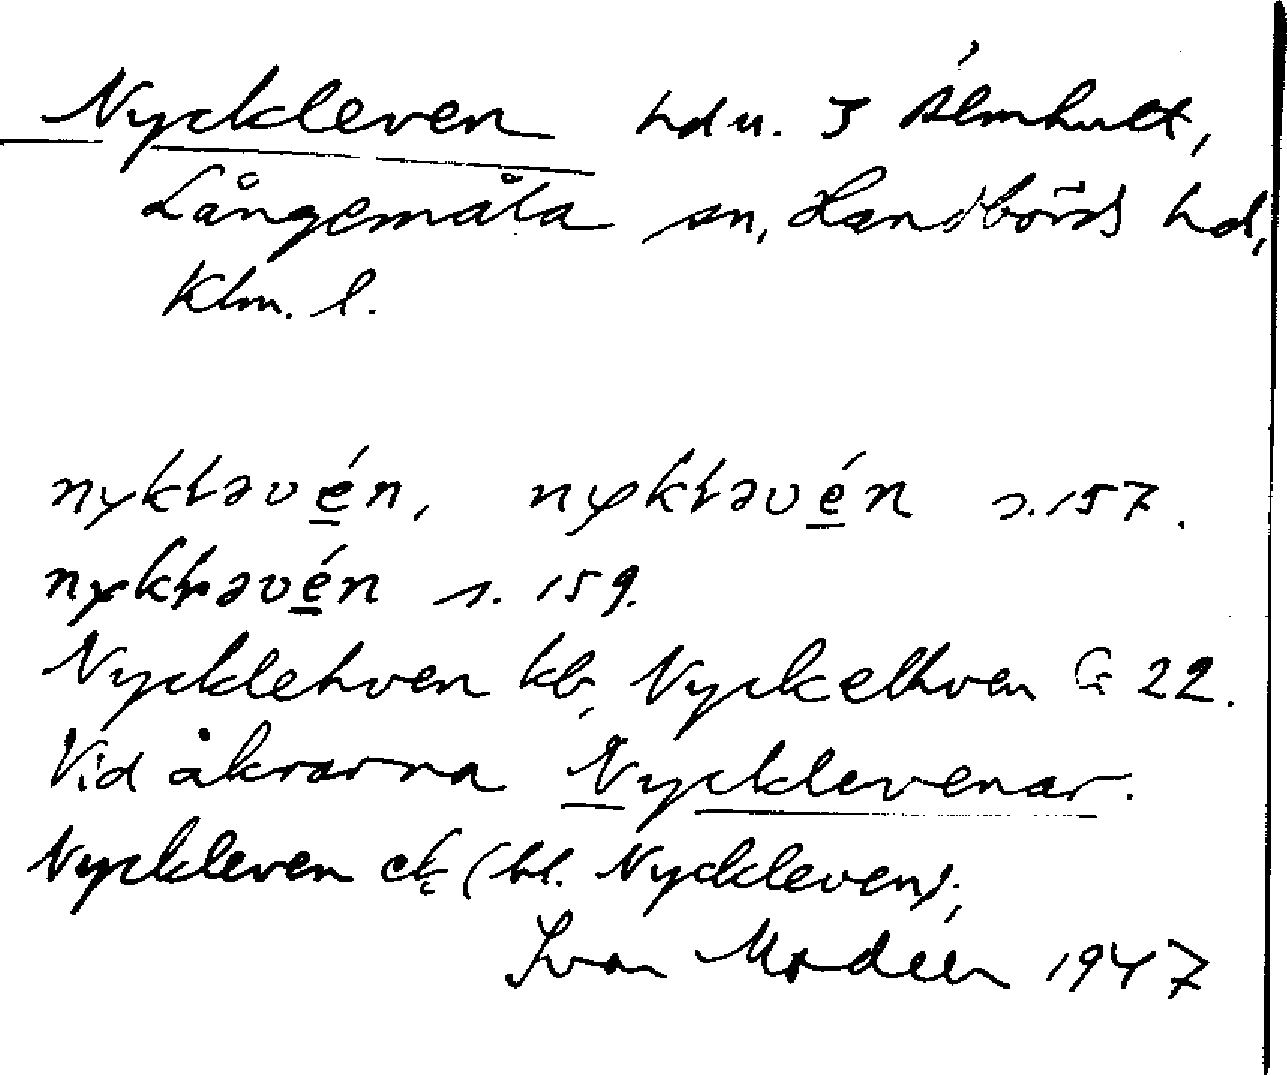 Nyckleven hdn. 3 Älmhult,
Långemåla sn, Handbörds hd,
Klm. l.
nykləvén, nykləvén s. 157.
nykləvén s. 159.
Nycklehven kb, Nyckelhven G 22.
Vid åkrarna Nycklevenar.
Nyckleven ek (bl. Nyckleven);
Ivar Modéer 1947